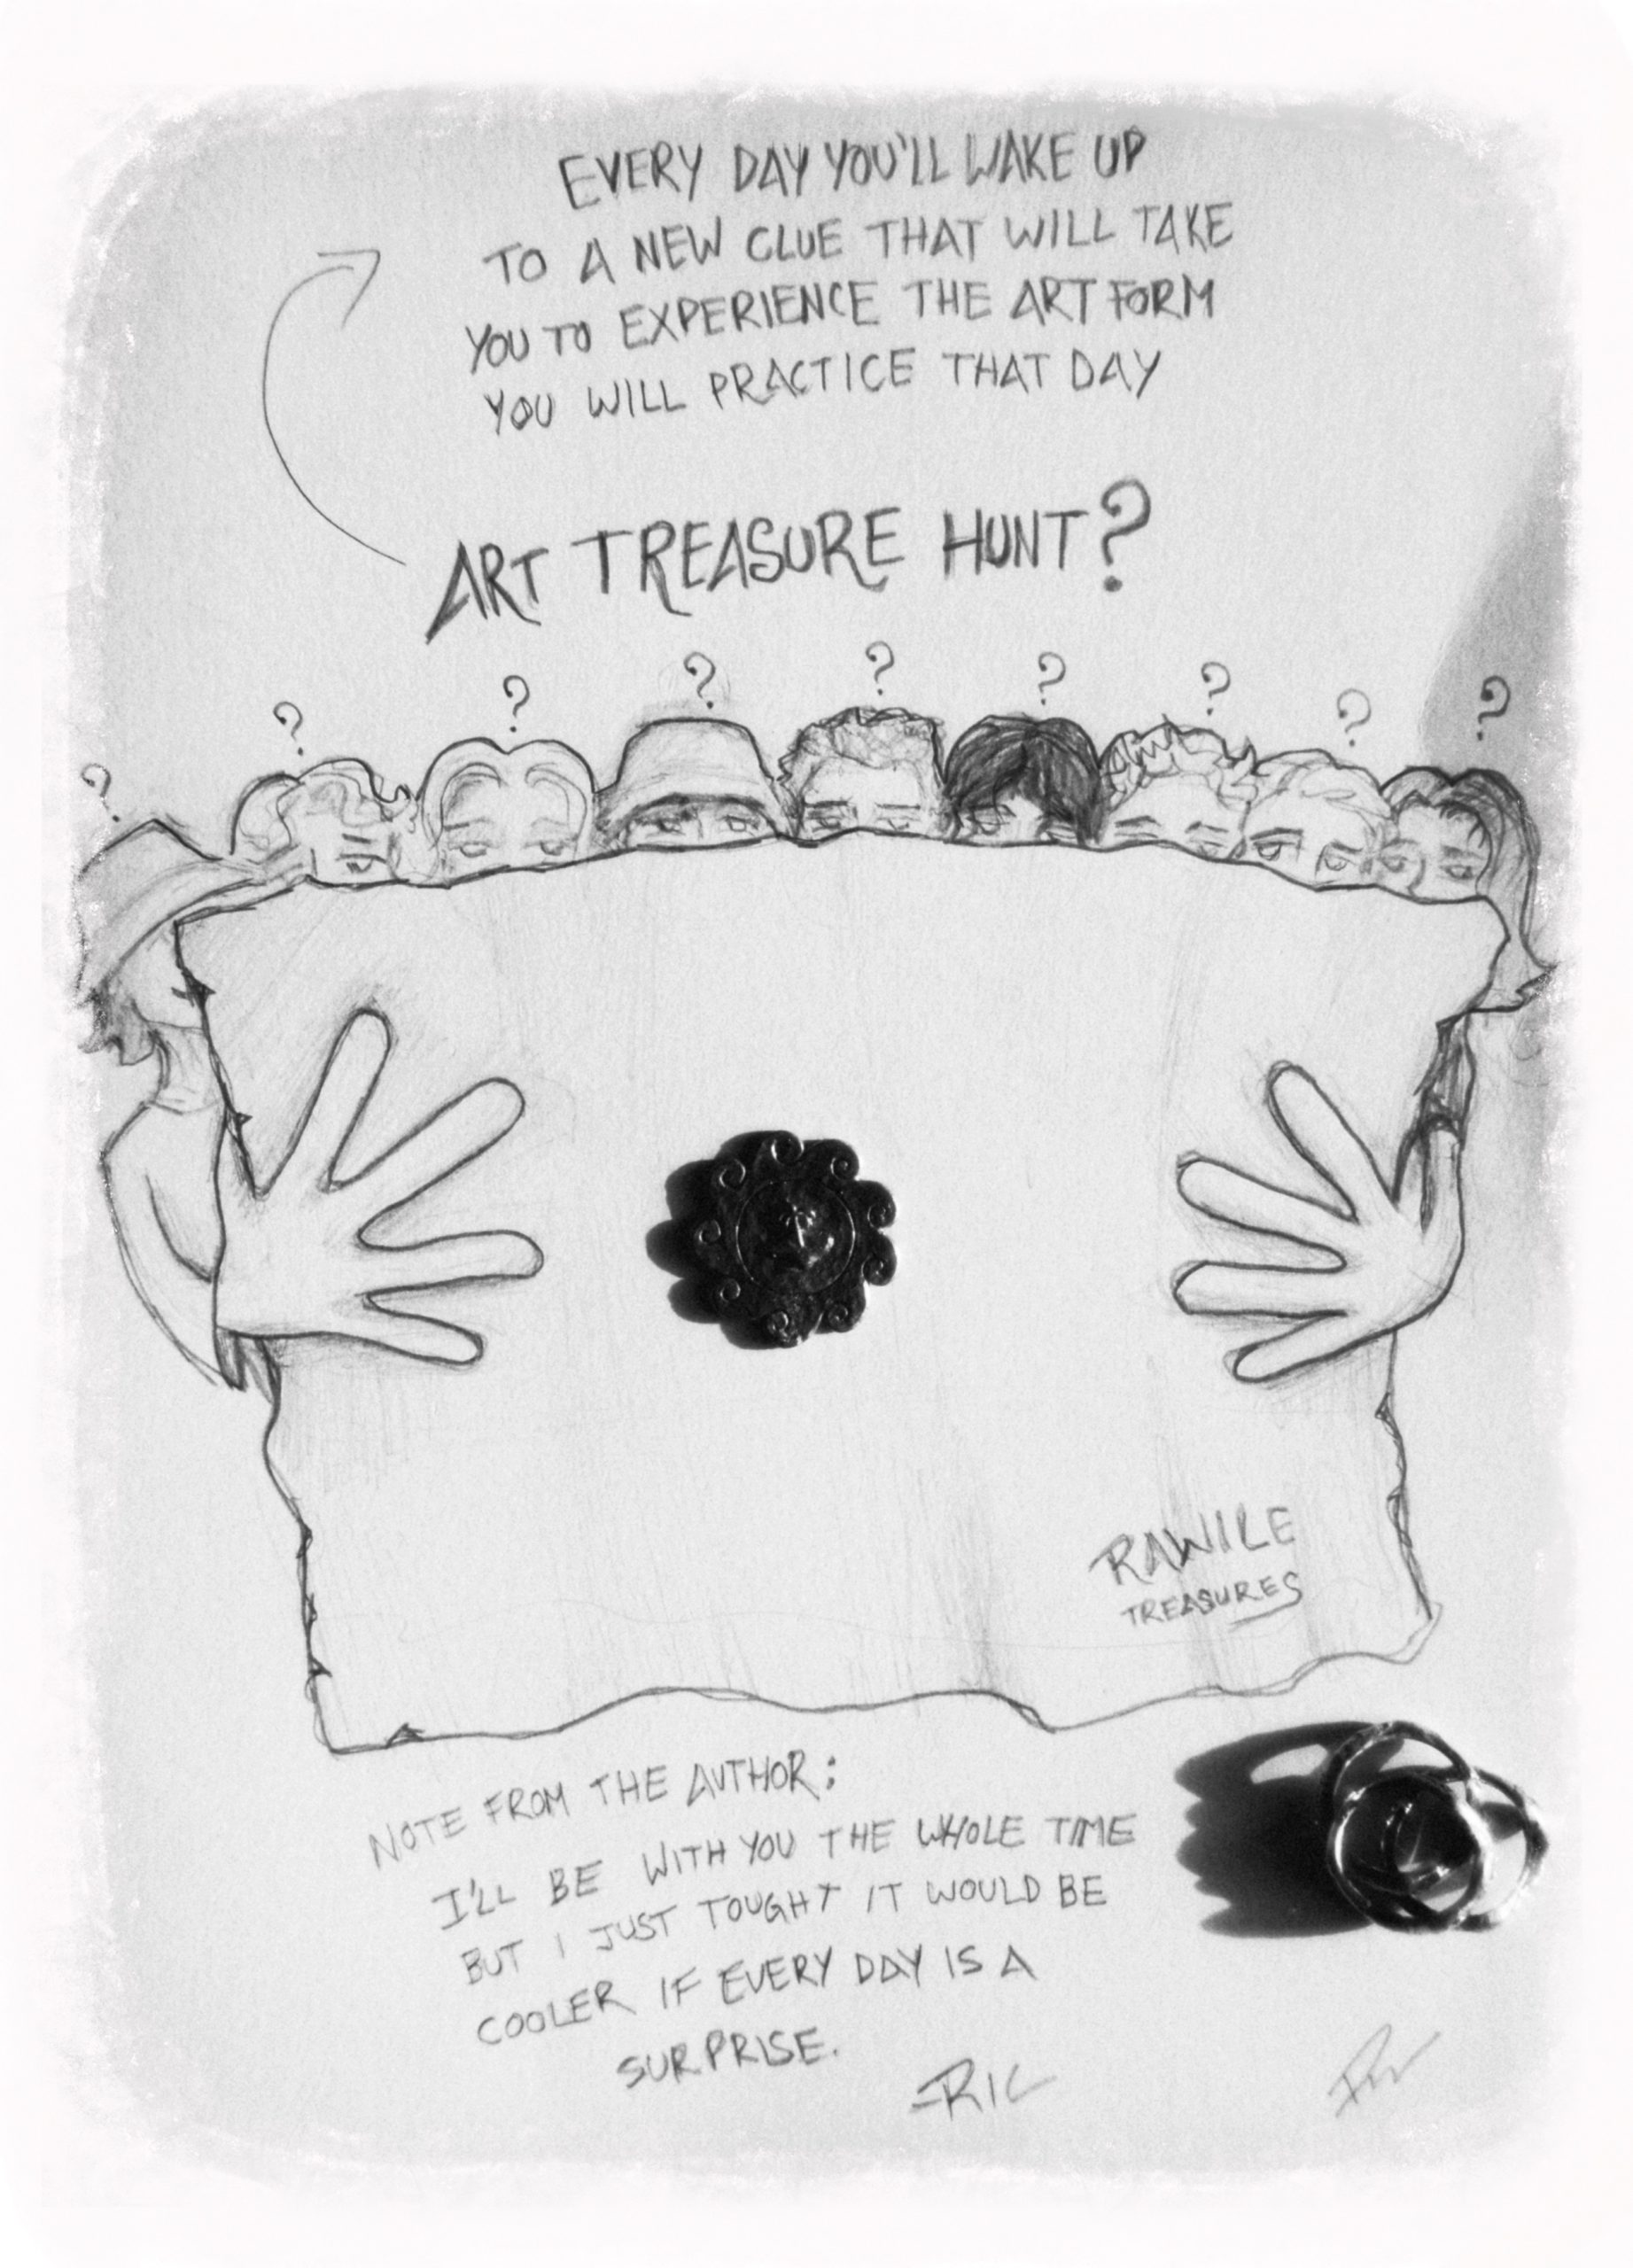 EVERY DAY YOU'LL WAKE UP
TO A NEW CLUE THAT WILL TAKE
YOU TO EXPERIENCE THE ART FORM
YOU WILL PRACTICE THAT DAY
ART TREASURE HUNT?
? ? ? ? ? ? ? ? ?
RAWILE
TREASURES
NOTE FROM THE AUTHOR:
I'LL BE WITH YOU THE WHOLE TIME
BUT I JUST TOUGHT IT WOULD BE
COOLER IF EVERY DAY IS A
SURPRISE.
-RIC